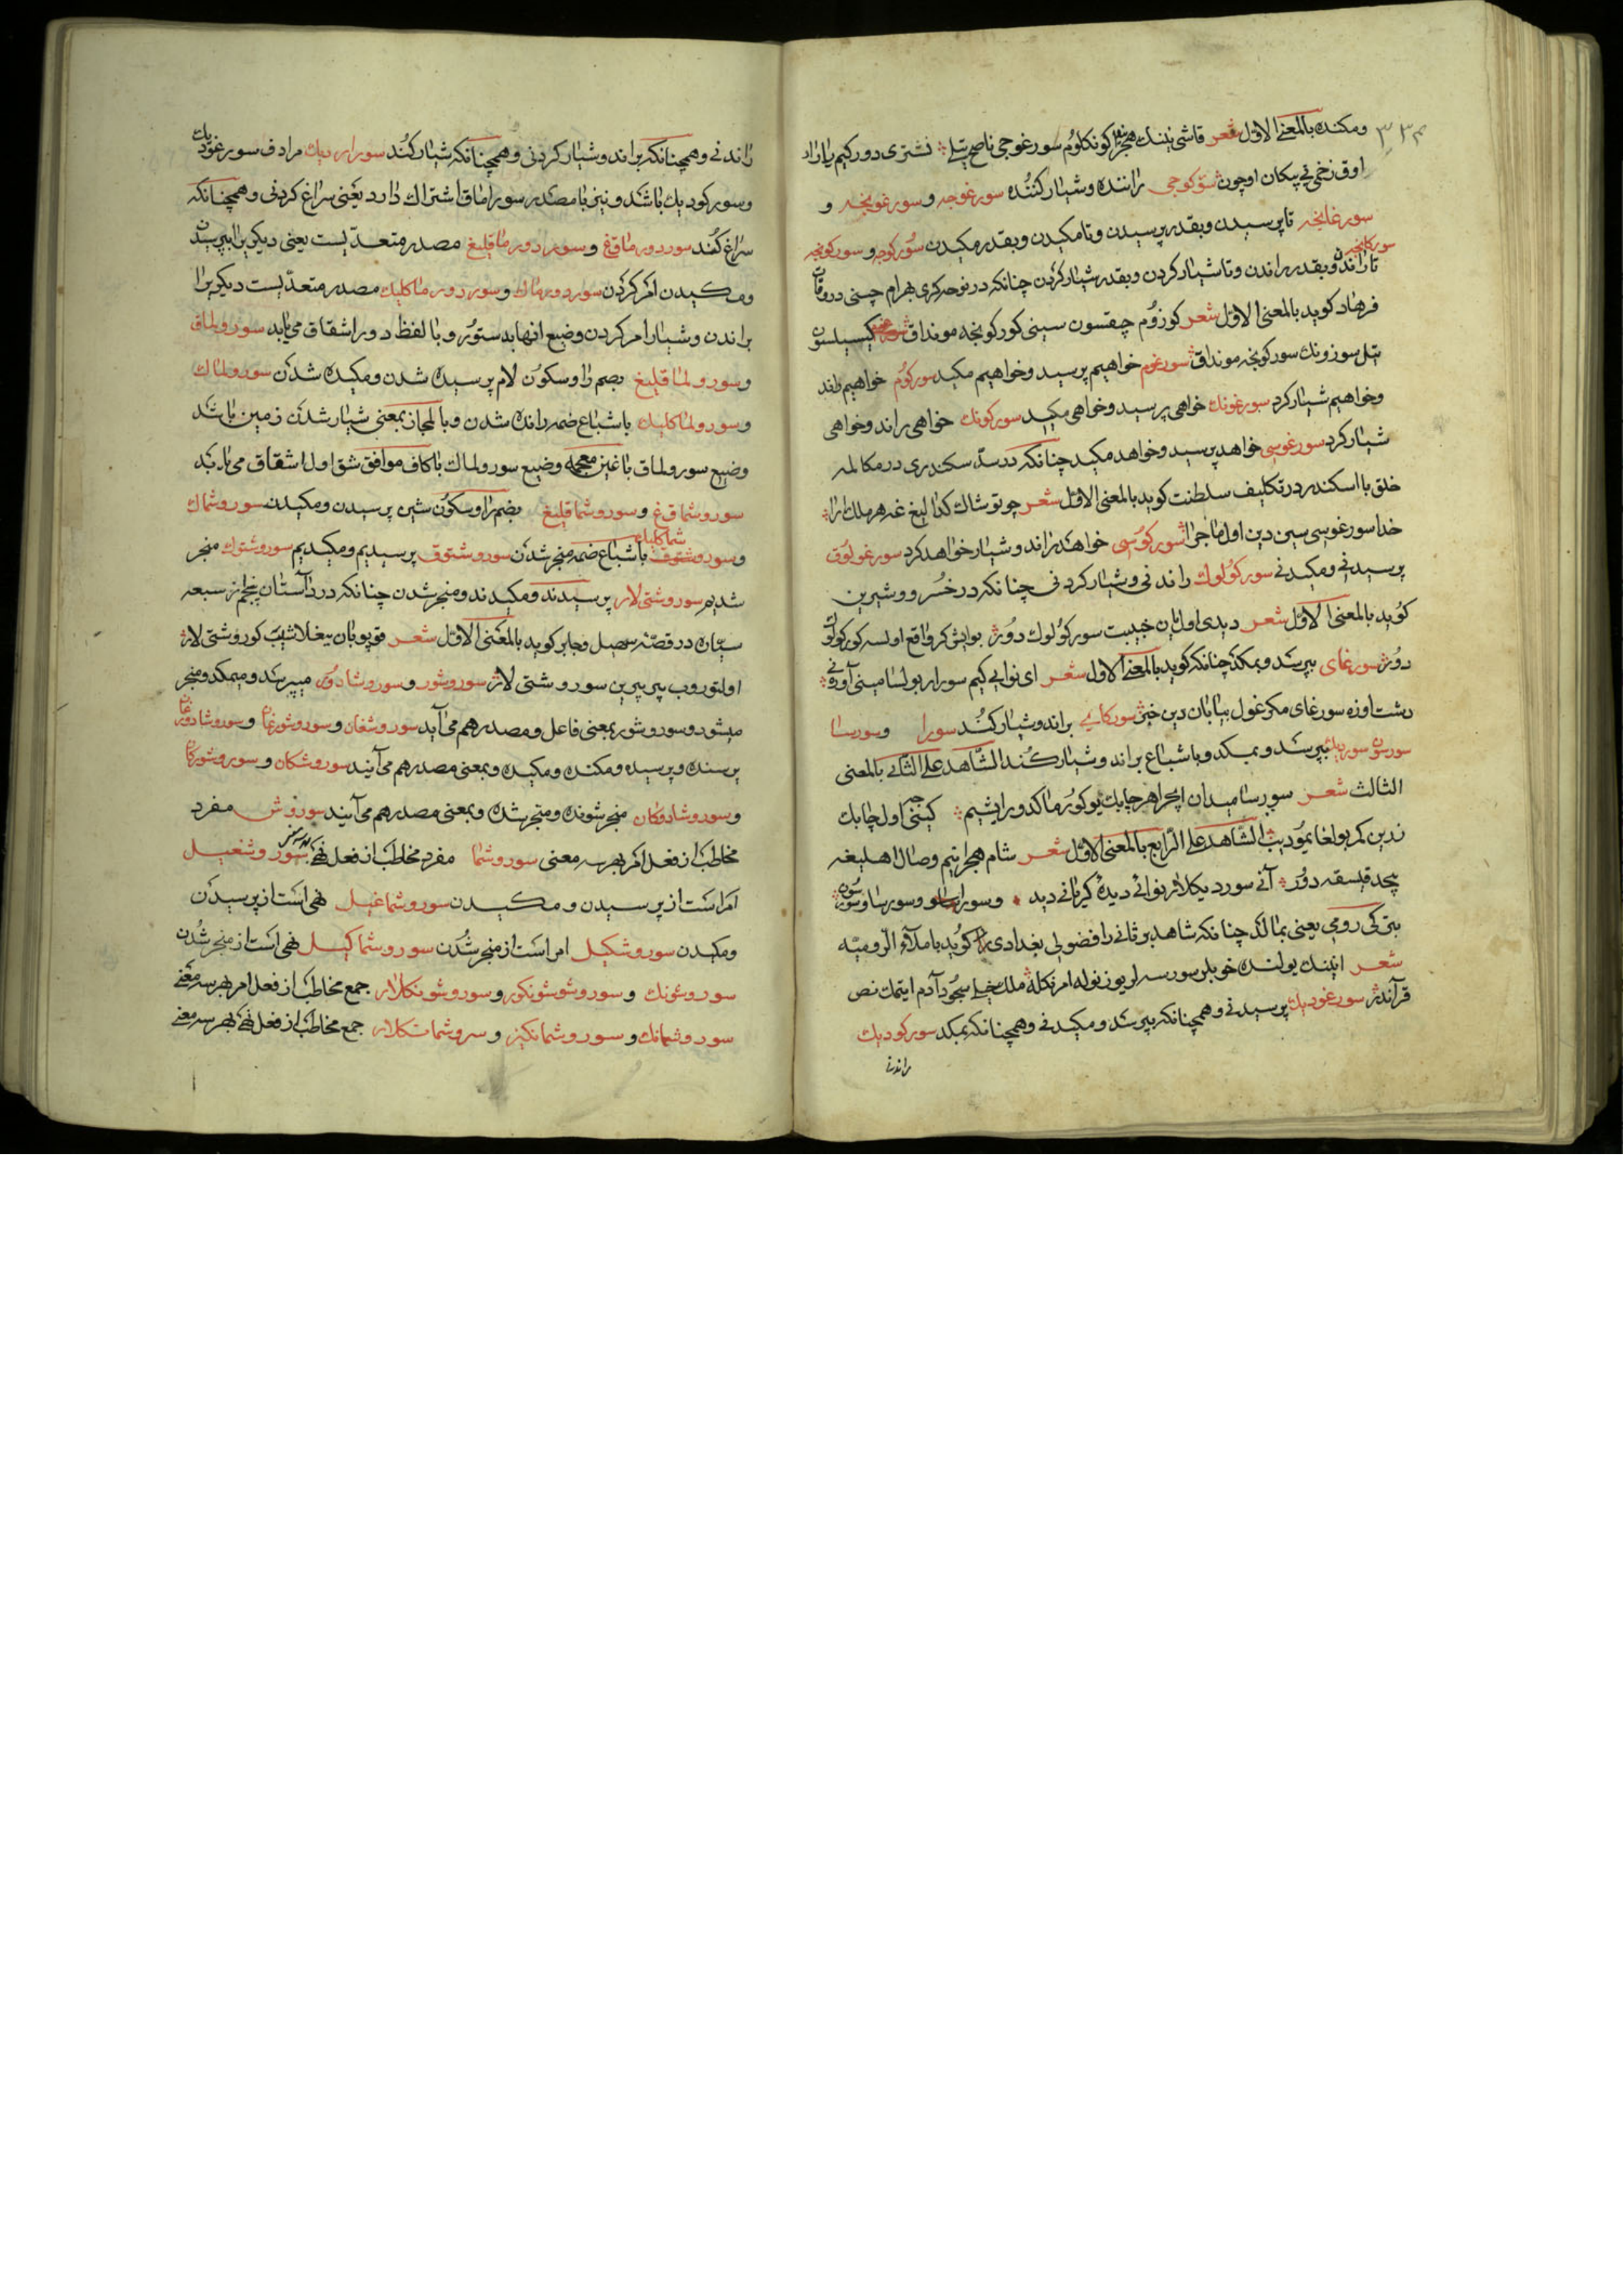 ومکنده بالمعنی الاول شعر قاشی نینك هجر کونکلوم سورغوجی ناصح بیتیلە نشتری دور کیم یارار
اوق زخمی نی پیکان اوچون سورکوجی راننده وشیار کننده سورغوجه وسورغونجه و
سورغانجه تا پرسیدن وبقدر پرسیدن وتا مکیدن وبقدر مکیدن سورکوجه و سورکونجه
سورکانجه تا راندن وبقدر راندن وتا شیار کردن وبقدر شیار کردن چنانکه در نوحه کری بهرام چنی در وفات
فرهاد کوید بالمعنی الاول شعر کوزوم چیقسون سینی کورکونجه مونداق کیسیلسون
تیل سوزونك سورکونجه مونداق سورغوم خواهیم پرسید وخواهیم مکید سورکوم خواهیم راند
وخواهیم شیار کرد سورغونك خواهی پرسید وخواهی مکید سورکونك خواهی راند وخواهی
شیار کرد سورغوسی خواهد پرسید وخواهد مکید چنانکه در سد سکندری در مکالمه
خلق با اسکندر در تکلیف سلطنت کوید بالمعنی الاول شعر چو توشاك کدالیغ غه هر ملك ارا
خدا سورغوسی سین دین اول ماجرا سورکوسی خواهد راند وشیار خواهد کرد سورغولوق
پرسیدنی ومکیدنی سورکولوك راندنی وشیار کردنی چنانکه در خسرو وشیرین
کوید بالمعنی الاول شعر دیدی اولیان خبیت سورکولوك دور بو ایش کر واقع اولسه کورکولوك
دور سورغای بپرسد وبمکد چنانکه کوید بالمعنی الاول شعر ای نوایی کیم سورار بولسا مینی آوره نی
دشت اوزه سورغای مکر غول بیابان دین خبر سورکای براند وشیار کند سورا وسورسا
سورسون سوردیك بپرسد وبمکد وباشباع براند وشیار کند الشاهد علی الثانی بالمعنی
الثالث شعر سورسا میدان ایچرا هر چابك یوکورماکدور ایشیم کیننی جه اول چابك
زرین کمر بولغای مو دیب الشاهد علی الرابع بالمعنی الاول شعر شام هجرانیم وصال اهلیغه
نیچه قیسقه دور آنی سوردیکلار نوائی دیده کریانی دید وسورسا وسون
بتركی رومی یعنی بماللد چنانکه شاهد بر ثانی را فضولی بغدادی کوید باملاء الرومیه
شعر انینك یولنده خوبلر سورسه لر یوز نوله امرنکله ملك خیلی سجود آدم ایتمك نص
قرآندر سورغودیك پرسیدنی وهمچنانکه بپرسد ومکیدنی وهمچنانکه بمکد سورکودیك
راندنی
راندنی وهمچنانکه براند وشیار کردنی وهمچنانکه شیار کند سوراردیك مرادف سورغودیك
وسورکودیك باشد ونیز با مصدر سوراماق اشتراك دارد یعنی سراغ کردنی وهمچنانکه
سراغ کند سوردورماق غ وسوردورماقلیغ مصدر متعدیست یعنی دیکریرا بپرسیدن
ومکیدن امر کردن سوردورماك وسوردورماکلیك مصدر متعدیست دیکریرا
براندن وشیار امر کردن وضیع انها بدستور وبا لفظ دور اشتقاق می یابد سورولماق
وسورولماقلیغ بضم را وسکون لام پرسیده شدن ومکیده شدن سورولماك
وسورولماکلیك باشباع ضمه رانده شدن وبالمجاز بمعنی شیار شدن زمین باشد
وضیع سورولماق با غین معجمه وضیع سورولماك با کاف موافق شق اول اشتقاق می یابد
سوروشماق غ وسوروشماقلیغ بضم را وسکون شین پرسیدن ومکیدن سوروشماك
وسوروشماکلیك باشباع ضمه منجر شدن سوروشتوق پرسیدیم ومکیدیم سوروشتوك منجر
شدیم سوروشتی لار پرسیدند ومکیدند ومنجر شدن چنانکه در داستان پنجم از سبعه
سیاره در قصه سهیل وجابر کوید بالمعنی الاول شعر قوپوبان ییغلاشیب کوروشتی لار
اولتوروب بیر بیرین سوروشتی لار سوروشور وسوروشادور میپرسد ومیمکد ومنجر
میشود وسوروشور بمعنی فاعل ومصدر هم می آید سوروشغان وسوروشورغان وسوروشادورغان
پرسنده وپرسیده ومکنده ومکیده وبمعنی مصدر هم می آیند سوروشکان وسوروشورکان
وسوروشادورکان منجر شونده ومنجر شده وبمعنی مصدر هم می آیند سوروش مفرد
مخاطب از فعل امر بهر سه معنی سوروشما مفرد مخاطب از فعل نهی بهر سه معنی سوروشغیل
امر است از پرسیدن ومکیدن سوروشماغیل نهی است از پرسیدن
ومکیدن سوروشکیل امر است از منجر شدن سوروشماکیل نهی است از منجر شدن
سوروشونك وسوروشونکوز وسوروشونکلار جمع مخاطب از فعل امر بهر سه معنی
سوروشمانك وسوروشمانکیز وسروشمانکلار جمع مخاطب از فعل نهی بهر سه معنی